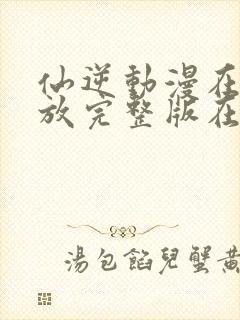 仙逆動漫在
放完整版在
湯包餡兒蟹黃